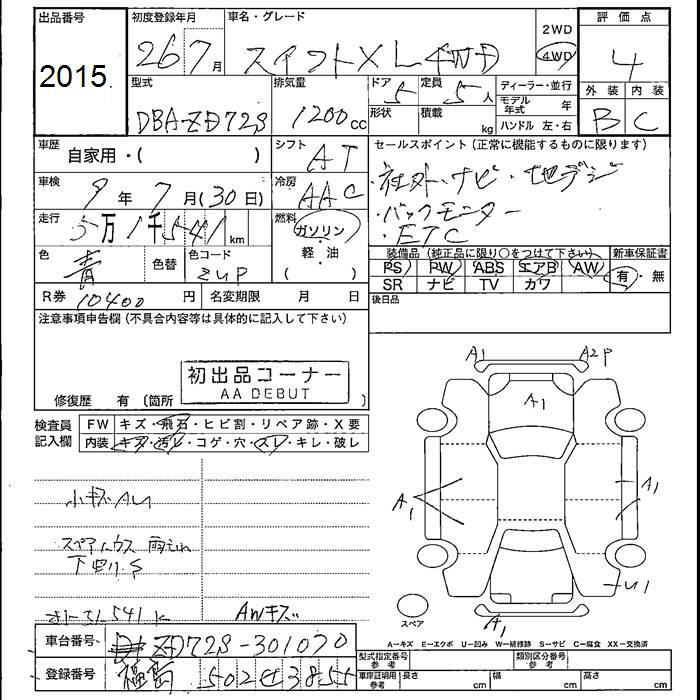 出品番号
2015.
初度登録年月
26 7月
車名・グレード
スイフト XL 4WD
2WD
4WD
評価点
4
外装 内装
B C
型式
DBA-ZD72S
排気量
1200 cc
ドア 5
形状
定員 5 人
積載 kg
ディーラー・並行
モデル年式 年
ハンドル 左・右
車歴
自家用・( )
シフト
AT
セールスポイント(正常に機能するものに限ります)
・社外・ナビ・地デジ
・バックモニター
・ETC
車検
9年 7月(30日)
冷房
AAC
走行
5万1千541 km
燃料
ガソリン
軽・油
色
青
色替
色コード
ZUP
装備品(純正品に限り○をつけて下さい)
PS PW ABS エアB AW
SR ナビ TV カワ
新車保証書
有・無
R券 10400 円
名変期限 月 日
後日品
注意事項申告欄(不具合内容等は具体的に記入して下さい)
初出品コーナー
AA DEBUT
修復歴 有〔箇所
検査員
記入欄
FW キズ・飛石・ヒビ割・リペア跡・X要
内装 キズ・汚レ・コゲ・穴・スレ・キレ・破レ
小キズAU
スペアハウス 雨もれ
下回り.S
51541 K
AWキズ
車台番号 ZD72S-301070
登録番号 福島 502 3855
A1 A2P
A1
A1
A1
U1
A1
スペア
A-キズ E-エクボ U-凹み W-補修跡 S-サビ C-腐食 XX-交換済
型式指定番号 参考
類別区分番号 参考
車庫証明用 参考 長さ cm 幅 cm 高さ cm